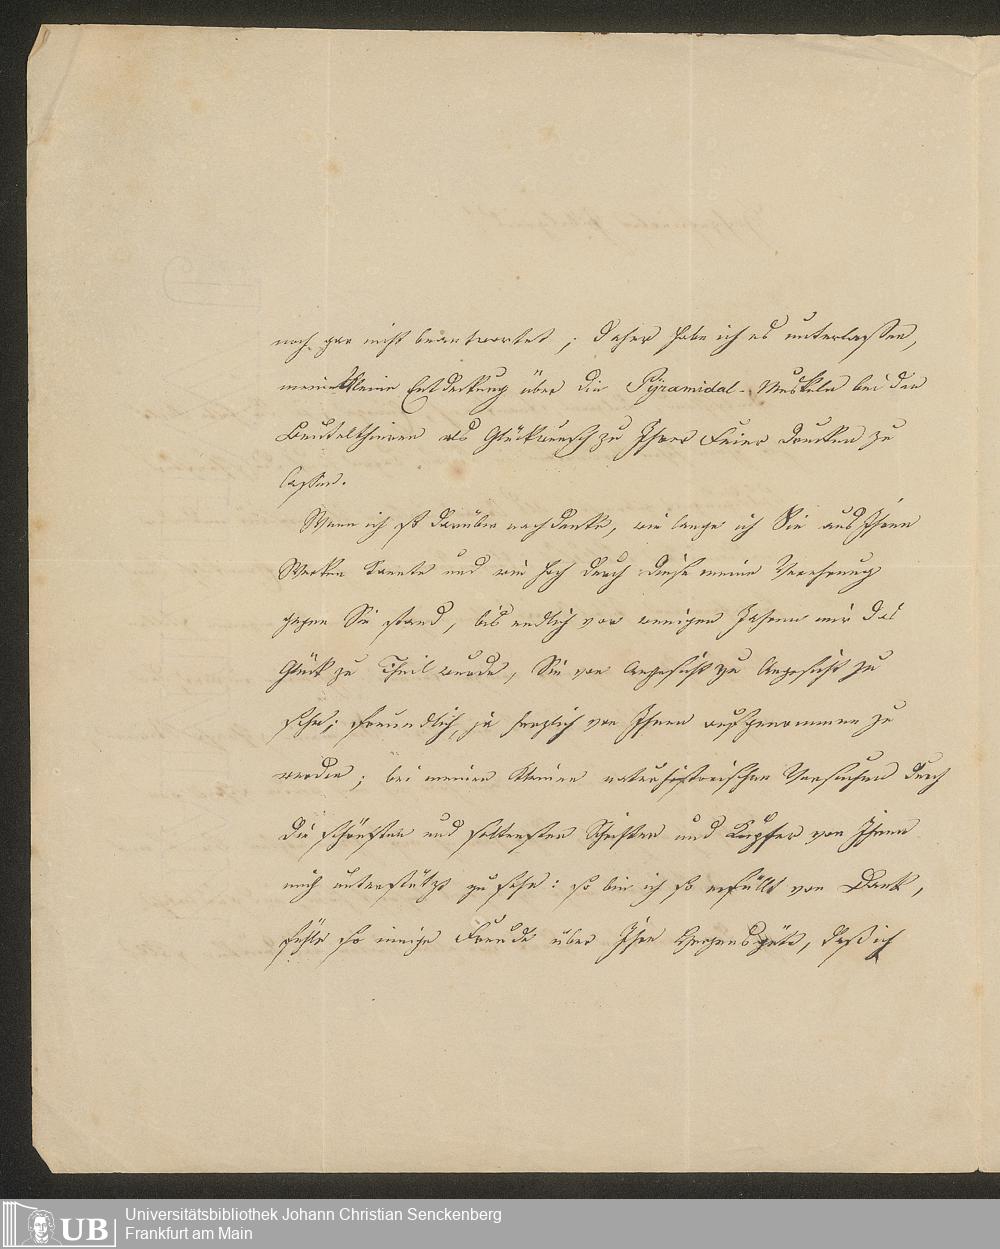 noch gar nicht beantwortet; daher habe ich es unterlassen,
meine kleine Entdeckung über die Pyramidal-Muskeln bei den
Beutelthieren als Glückwunsch zu Ihrer Feier drucken zu
lassen.
Wenn ich so darüber nachdenke, wie lange ich Sie aus Ihren
Werken kannte und wie hoch durch diese meine Verehrung
gegen Sie stand, bis endlich vor wenigen Jahren mir das
Glück zu Theil wurde, Sie von Angesicht zu Angesicht zu
sehen; freundlich, ja herzlich von Ihnen aufgenommen zu
werden; bei meinen kleinen naturhistorischen Versuchen durch
die schönsten und seltensten Schriften und Kupfer von Ihnen
mich unterstützt zu sehen: so bin ich so erfüllt von Dank,
fühle so innige Freude über Ihre Herzensgüte, daß ich
UB
Universitätsbibliothek Johann Christian Senckenberg
Frankfurt am Main